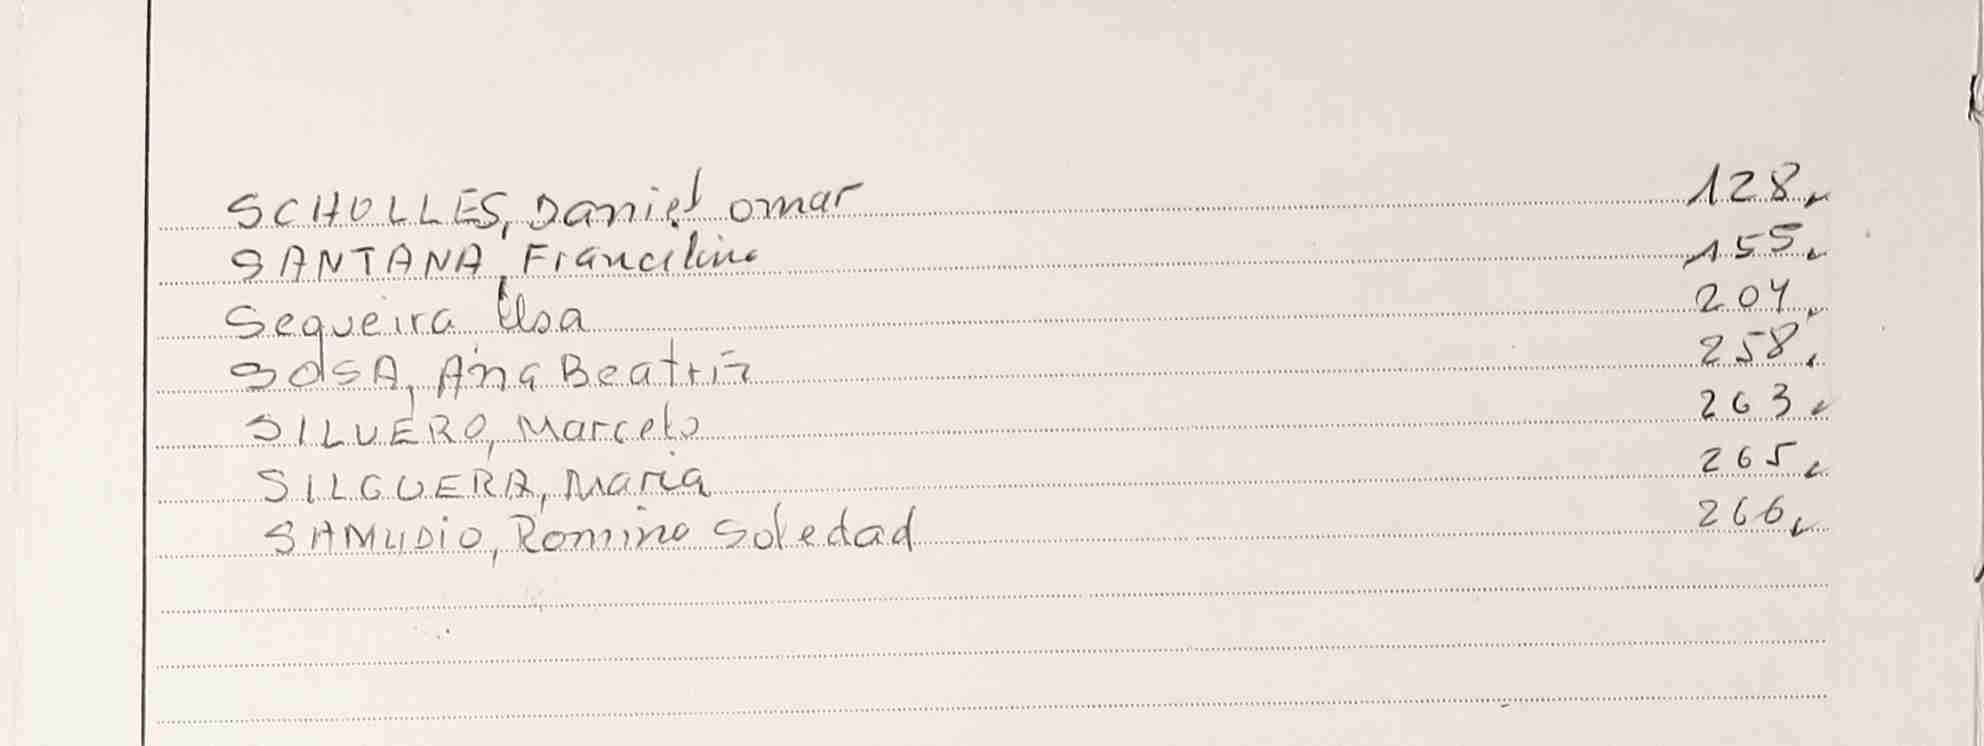 SCHOLLES, Daniel omar 128
SANTANA, Francilino 155
Sequeira Elsa 204
SOSA, Ana Beatriz 258
SILVERO, Marcelo 263
SILGUERA, Maria 265
SAMUDIO, Romina Soledad 266